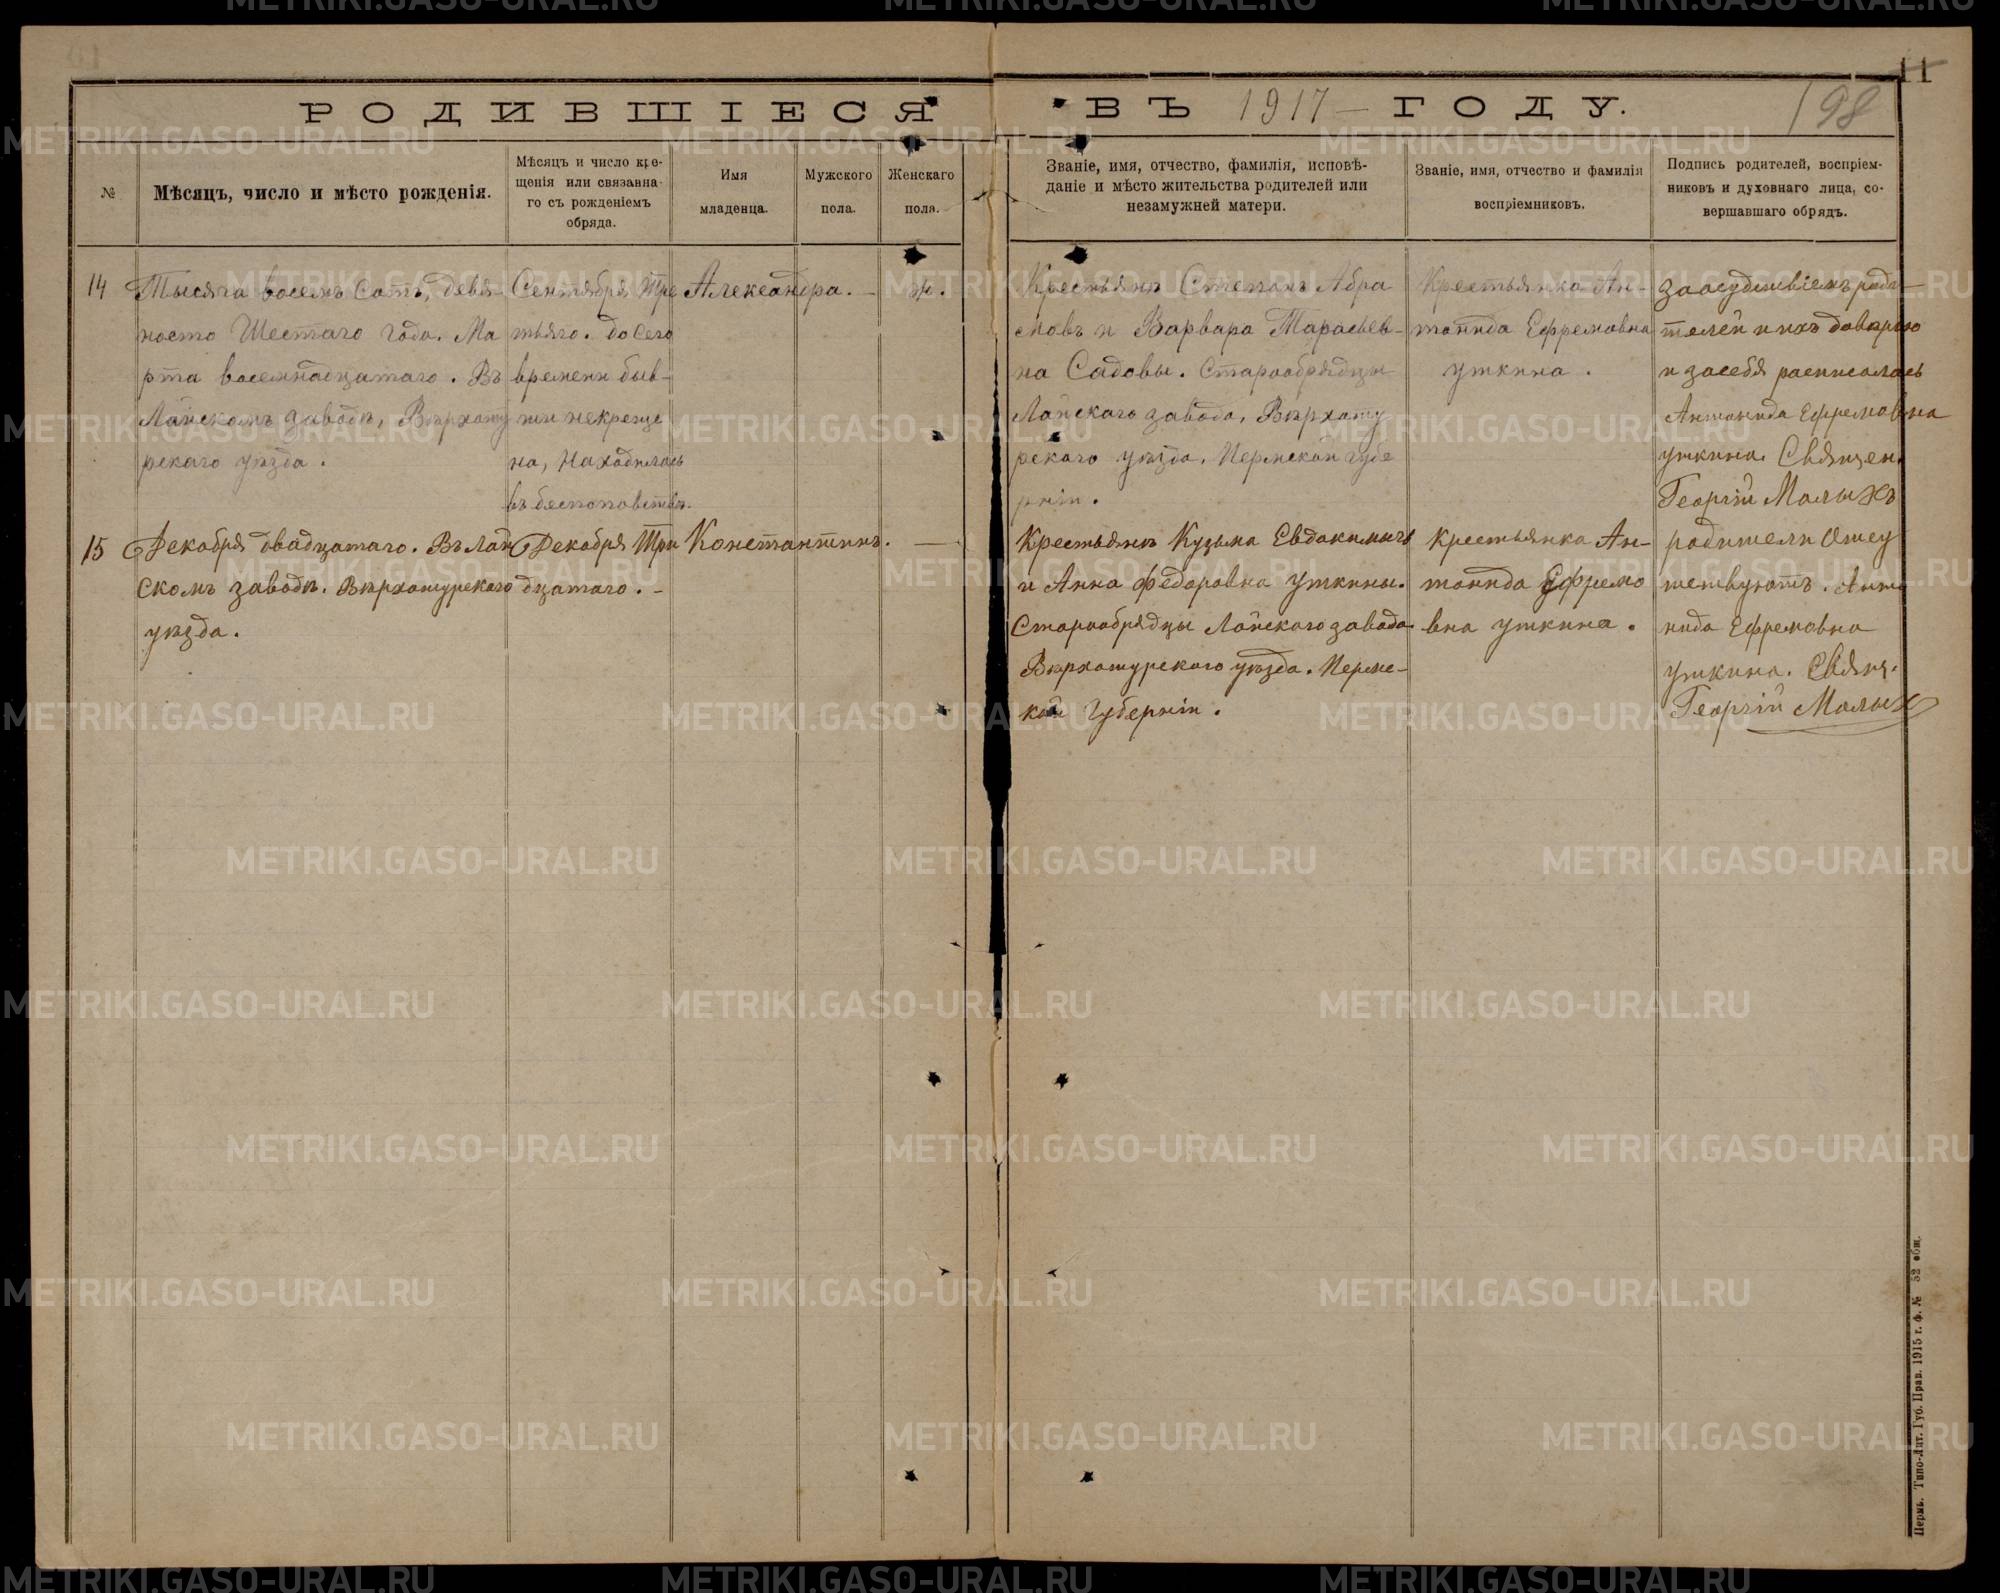 11
РОДИВШІЕСЯ ВЪ 1917 — ГОДУ.
198
№
Мѣсяцъ, число и мѣсто рожденія.
Мѣсяцъ и число кре-
щенія или связанна-
го съ рожденіемъ
обряда.
Имя
младенца.
Мужского
пола.
Женскаго
пола.
Званіе, имя, отчество, фамилія, исповѣ-
даніе и мѣсто жительства родителей или
незамужней матери.
Званіе, имя, отчество и фамилія
воспріемниковъ.
Подпись родителей, воспріем-
никовъ и духовнаго лица, со-
вершавшаго обрядъ.
14
Тысяча восемъ сотъ, девя
носто Шестаго года. Ма
рта восемнадцатаго. Въ
Лайскомъ заводѣ, Верхоту
рскаго уѣзда.
Сентября Тре
тьяго. до сего
времени быв-
ши некреще
на, Находилась
въ беспоповствѣ.
Александра. —
ж.
Крестьянъ Степанъ Абра
мовъ и Варвара Тарасьев-
на Садовы. Старообрядцы
Лайскаго завода, Верхоту
рскаго уѣзда. Пермской губе
рніи.
Крестьянка Ан-
тонида Ефремовна
уткина.
за отсудствіемъ роди-
телей и ихъ доверію
и за себя расписалась
Антонида Ефремовна
уткина. Священ.
Георгій Малыхъ
15
Декабря двадцатаго. Въ Лай
скомъ заводѣ. Верхотурскаго
уѣзда.
Декабря Три
дцатаго. -
Константинъ. —
Крестьянъ Кузьма Евдокимычъ
и Анна Федоровна уткины.
Старообрядцы Лайскаго завода
Верхотурскаго уѣзда. Пермс-
кой Губерніи.
Крестьянка Ан-
тонида Ефремо
вна уткина.
родители отсу
тствуютъ. Анто
нида Ефремовна
уткина. Свящ.
Георгій Малых
Пермь. Типо-Лит. Губ. Прав. 1915 г. ф. № 52 общ.
METRIKI.GASO-URAL.RU